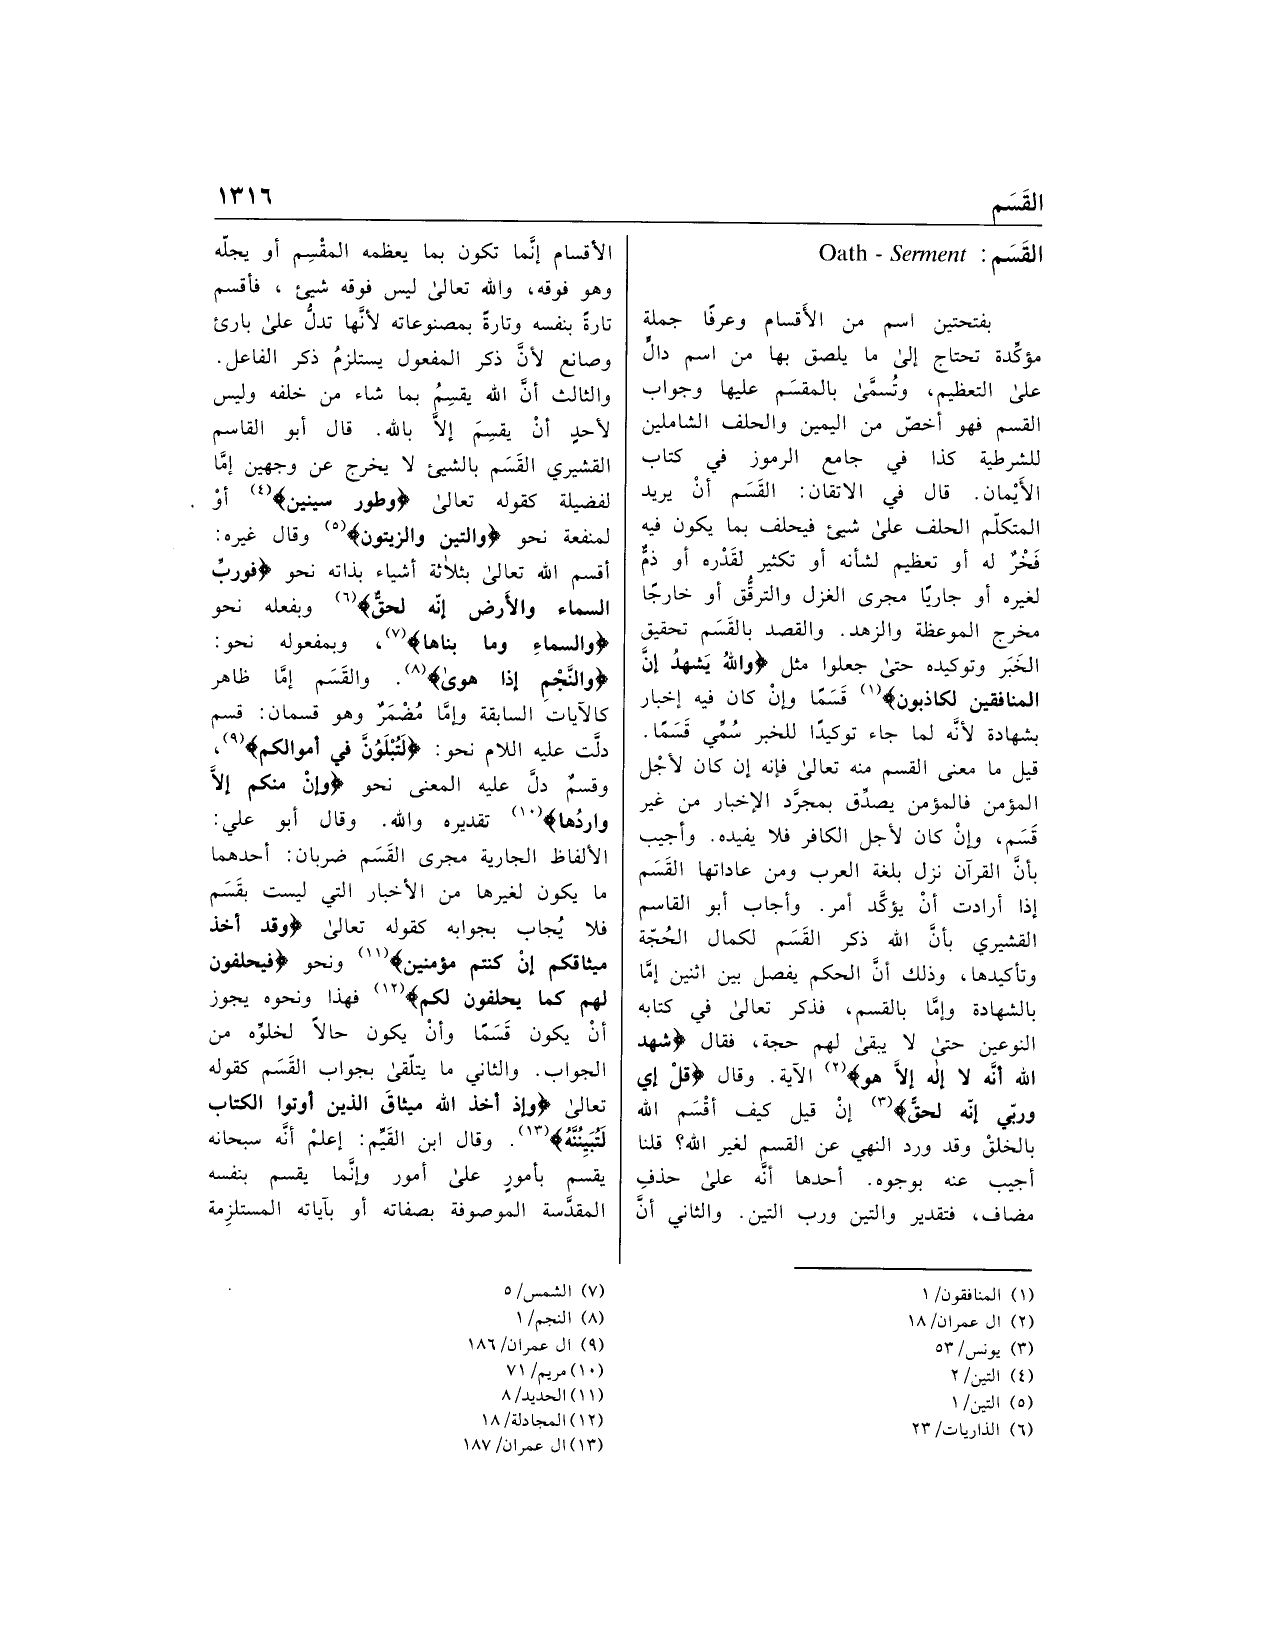 القَسَم
١٣١٦
القَسَم: Oath - Serment
بفتحتين اسم من الأَقسام وعرفًا جملة
مؤكّدة تحتاج إلىٰ ما يلصق بها من اسم دالٍّ
علىٰ التعظيم، وتُسمَّىٰ بالمقسَم عليها وجواب
القسم فهو أخصّ من اليمين والحلف الشاملين
للشرطية كذا في جامع الرموز في كتاب
الأَيْمان. قال في الاتقان: القَسَم أنْ يريد
المتكلّم الحلف علىٰ شيئ فيحلف بما يكون فيه
فَخْرٌ له أو تعظيم لشأنه أو تكثير لقَدْره أو ذمٌّ
لغيره أو جاريًا مجرى الغزل والترقُّق أو خارجًا
مخرج الموعظة والزهد. والقصد بالقَسَم تحقيق
الخَبَر وتوكيده حتىٰ جعلوا مثل ﴿واللهُ يَشهدُ إنَّ
المنافقين لكاذبون﴾(١) قَسَمًا وإنْ كان فيه إخبار
بشهادة لأنَّه لما جاء توكيدًا للخبر سُمِّي قَسَمًا.
قيل ما معنى القسم منه تعالىٰ فإنه إن كان لأجْل
المؤمن فالمؤمن يصدِّق بمجرَّد الإخبار من غير
قَسَم، وإنْ كان لأجل الكافر فلا يفيده. وأجيب
بأنَّ القرآن نزل بلغة العرب ومن عاداتها القَسَم
إذا أرادت أنْ يؤكَّد أمر. وأجاب أبو القاسم
القشيري بأنَّ الله ذكر القَسَم لكمال الحُجّة
وتأكيدها، وذلك أنَّ الحكم يفصل بين اثنين إمَّا
بالشهادة وإمَّا بالقسم، فذكر تعالىٰ في كتابه
النوعين حتىٰ لا يبقىٰ لهم حجة، فقال ﴿شهد
الله أنَّه لا إلٰه إلاَّ هو﴾(٢) الآية. وقال ﴿قلْ إي
وربّي إنّه لحقَّ﴾(٣) إنْ قيل كيف أقْسَم الله
بالخلقْ وقد ورد النهي عن القسم لغير الله؟ قلنا
أجيب عنه بوجوه. أحدها أنَّه علىٰ حذفِ
مضاف، فتقدير والتين ورب التين. والثاني أنَّ
الأقسام إنَّما تكون بما يعظمه المقْسِم أو يجلّه
وهو فوقه، والله تعالىٰ ليس فوقه شيئ ، فأقسم
تارةً بنفسه وتارةً بمصنوعاته لأنَّها تدلُّ علىٰ بارئ
وصانع لأنَّ ذكر المفعول يستلزمُ ذكر الفاعل.
والثالث أنَّ الله يقسِمُ بما شاء من خلفه وليس
لأحدٍ أنْ يقسِمَ إلاَّ بالله. قال أبو القاسم
القشيري القَسَم بالشيئ لا يخرج عن وجهين إمَّا
لفضيلة كقوله تعالىٰ ﴿وطور سينين﴾(٤) أوْ
لمنفعة نحو ﴿والتين والزيتون﴾(٥) وقال غيره:
أقسم الله تعالىٰ بثلاثة أشياء بذاته نحو ﴿فوربِّ
السماء والأَرض إنّه لحقٌّ﴾(٦) وبفعله نحو
﴿والسماءِ وما بناها﴾(٧)، وبمفعوله نحو:
﴿والنَّجْمِ إذا هوىٰ﴾(٨). والقَسَم إمَّا ظاهر
كالآيات السابقة وإمَّا مُضْمَرٌ وهو قسمان: قسم
دلَّت عليه اللام نحو: ﴿لَتُبْلَوُنَّ في أموالكم﴾(٩)،
وقسمٌ دلَّ عليه المعنى نحو ﴿وإنْ منكم إلاَّ
واردُها﴾(١٠) تقديره والله. وقال أبو علي:
الألفاظ الجارية مجرى القَسَم ضربان: أحدهما
ما يكون لغيرها من الأخبار التي ليست بقَسَم
فلا يُجاب بجوابه كقوله تعالىٰ ﴿وقد أخذ
ميثاقكم إنْ كنتم مؤمنين﴾(١١) ونحو ﴿فيحلفون
لهم كما يحلفون لكم﴾(١٢) فهذا ونحوه يجوز
أنْ يكون قَسَمًا وأنْ يكون حالاً لخلوِّه من
الجواب. والثاني ما يتلّقىٰ بجواب القَسَم كقوله
تعالىٰ ﴿وإذ أخذ الله ميثاقَ الذين أوتوا الكتاب
لَتُبيِنُنَّهُ﴾(١٣). وقال ابن القَيِّم: إعلمْ أنَّه سبحانه
يقسم بأمورٍ علىٰ أمور وإنَّما يقسم بنفسه
المقدَّسة الموصوفة بصفاته أو بآياته المستلزِمة
(١) المنافقون/ ١
(٢) ال عمران/ ١٨
(٣) يونس/ ٥٣
(٤) التين/ ٢
(٥) التين/ ١
(٦) الذاريات/ ٢٣
(٧) الشمس/ ٥
(٨) النجم/ ١
(٩) ال عمران/ ١٨٦
(١٠) مريم/ ٧١
(١١) الحديد/ ٨
(١٢) المجادلة/ ١٨
(١٣) ال عمران/ ١٨٧